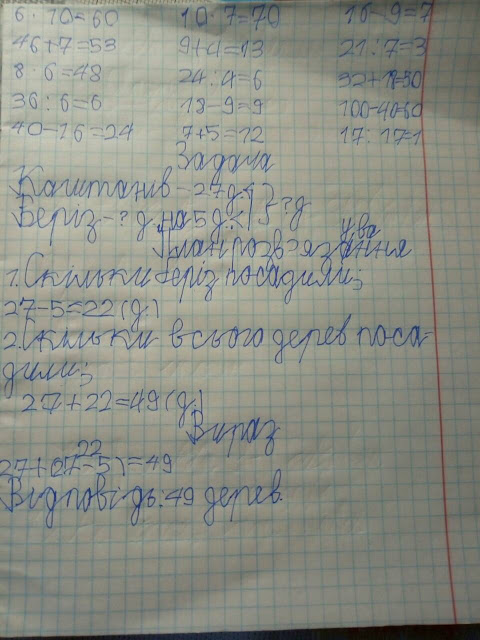 6 · 10=60 10 · 7=70 16-9=7
46+7=53 9+4=13 21:7=3
8 · 6=48 24:4=6 32+18=50
36:6=6 18-9=9 100-40=60
40-16=24 7+5=12 17:17=1
Задача
Каштанів-27д.
Беріз-? д. на 5 д.< } ?д
План розв'язання
1. Скільки беріз посадили;
27-5=22(д.)
2. Скільки всього дерев поса-
дили;
27+22=49(д.)
Вираз
22
27+(27-5)=49
Відповідь:49 дерев.